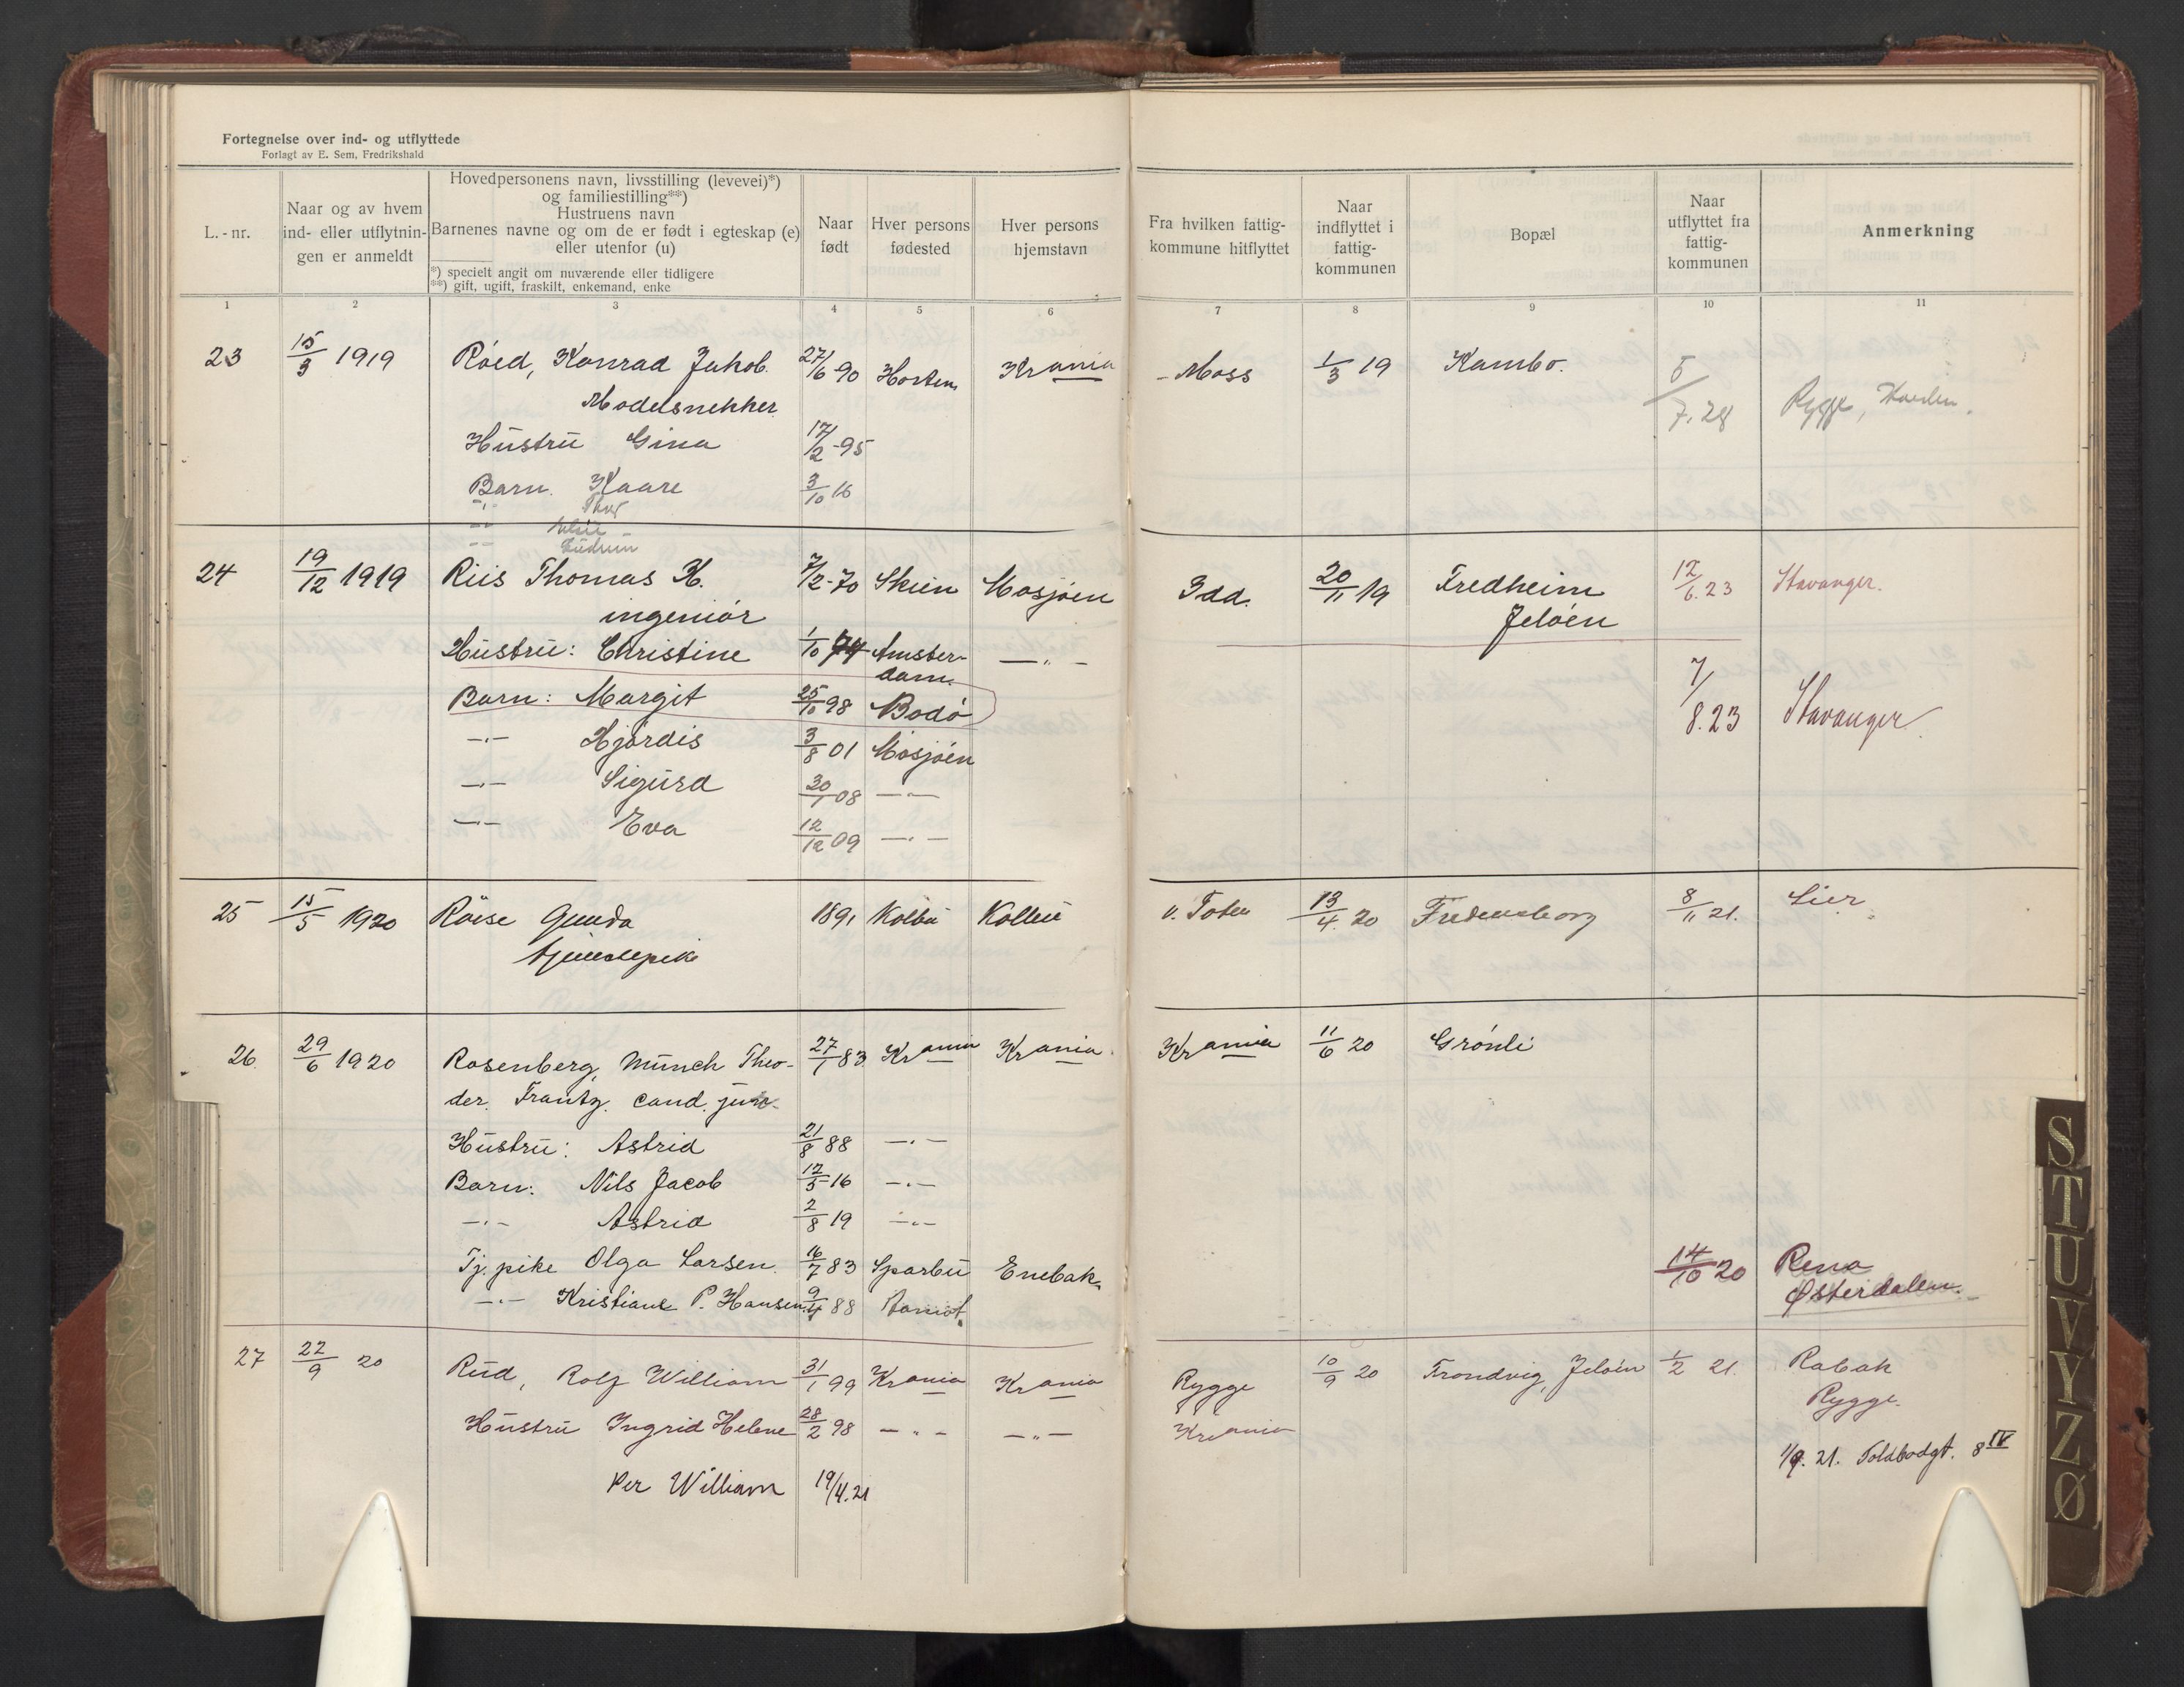 Fortegnelse over ind- og utflyttede
Forlagt av E. Sem, Fredrikshald
L.-nr.
Naar og av hvem ind- eller utflytnin-gen er anmeldt
Hovedpersonens navn, livsstilling (levevei)*)
og familiestilling**)
Hustruens navn
Barnenes navne og om de er født i egteskap (e)
eller utenfor (u)
*) specielt angit om nuværende eller tidligere
**) gift, ugift, fraskilt, enkemand, enke
Naar født
Hver persons fødested
Hver persons hjemstavn
Fra hvilken fattig-kommune hitflyttet
Naar indflyttet i fattig-kommunen
Bopæl
Naar utflyttet fra fattig-kommunen
Anmerkning
1 2 3 4 5 6 7 8 9 10 11
23 15/3 1919 Röed, Konrad Jakob. 27/6 90 Horten Krania Moss 1/3 19 Kambo. 5/7.28 Rygge,
Modelsnekker
Hustru Gina 17/2-95
Barn. Kaare 3/10 16
-"- Thor
-"-
-"- Gudrun
24 19/12 1919 Riis Thomas K. 7/2-70 Skien Mosjøen Idd. 20/11 19 Fredheim 12/6.23 Stavanger.
ingeniör Jelöen
Hustru: Christine 1/10 74 Amster-dam. -"-
Barn: Margit 25/10 98 Bodö 7/8.23 Stavanger
-"- Hjördis 3/8 01 Mosjöen
-"- Sigurd 30/1 08 -"-
-"- Eva 12/12 09 -"-
25 15/5 1920 Röise Gunda 1891 Kolbu Kolbu v. Toten 13/4.20 Fredensborg 8/11 21. Lier
tjenestepike
26. 29/6 1920 Rosenberg, Münch Theo- 27/1 83 Krania Krania. Krania 11/6 20 Grönli
der. Frantz. cand. juris.
Hustru: Astrid 21/8 88 -"-
Barn: Nils Jacob 12/5 16 -"-
-"- Astrid 2/8 19 -"-
Tj. pike Olga Larsen. 16/7 83 Sparbu Enebak 14/10 20 Rena
-"- Kristiane P. Hansen. 9/4 88 Aamot. Østerdalen.
27 22/9 20 Rud, Rolf William 31/1 99 Krania Krania Rygge 10/9 20 Trondvig, Jelöen 1/2 21. Rabak
Rygge.
Hustru Ingrid Helene 28/2 98 -"- -"- Krania
1/9. 21. Toldbodgt. 8 IV
Per William 19/4.21
S
T
U
V
Y
Z
Ø